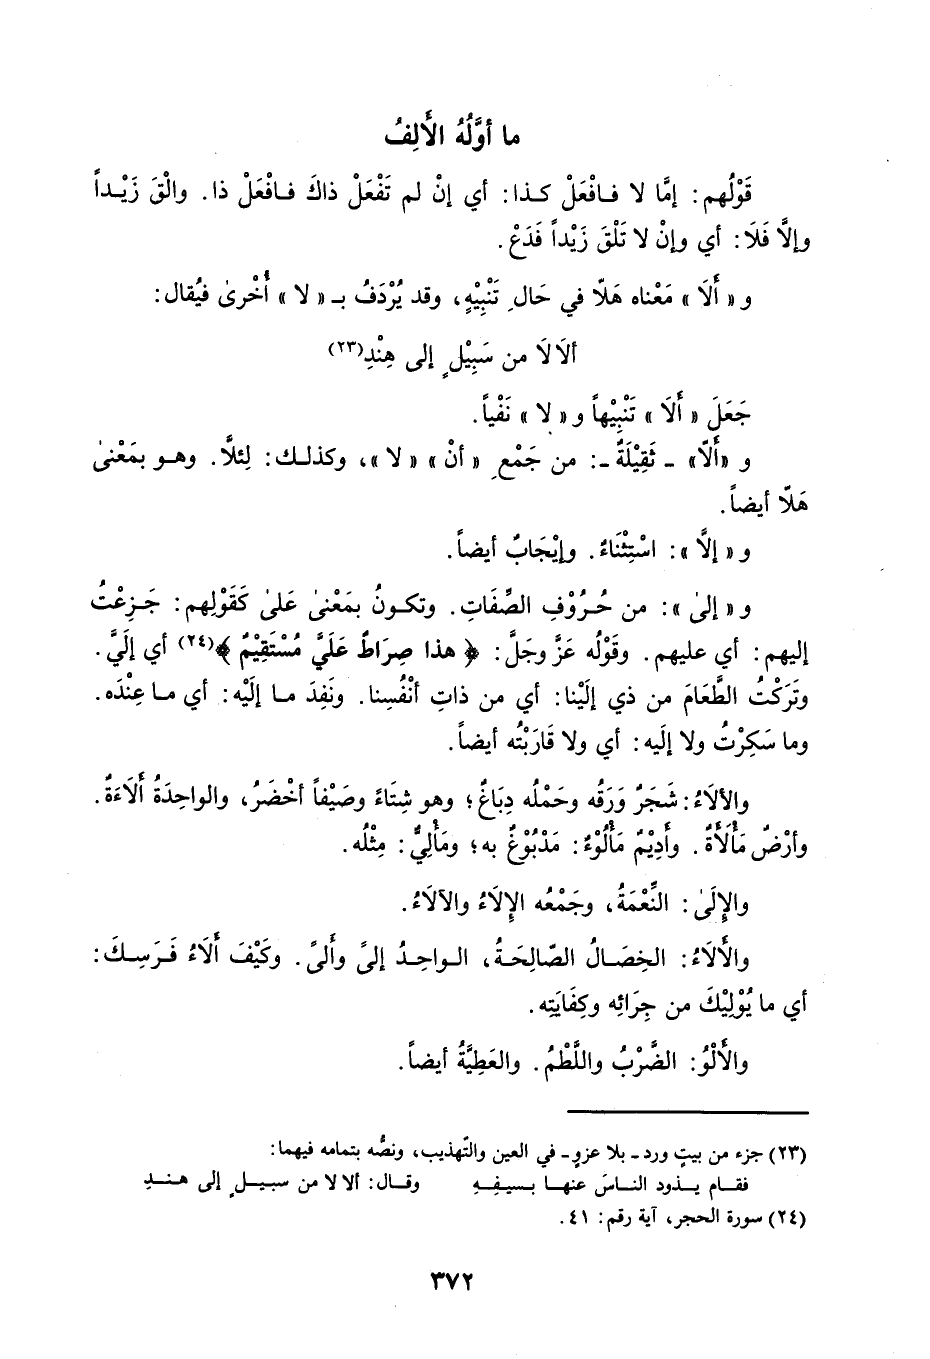 ما أوَّلُهُ الأَلِفُ
قَوْلُهم: إمَّا لا فـافْعَلْ كـذا: أي إنْ لم تَفْعَلْ ذاكَ فـافْعَلْ ذا. والْقَ زَيْـداً
وإلَّا فَلَا: أي وإنْ لا تَلْقَ زَيْداً فَدَعْ.
و « أَلَا » مَعْناه هَلّا في حَالِ تَنْبِيْهٍ، وقد يُرْدَفُ بـ « لا » أُخْرىٰ فيُقال:
ألَا لَا من سَبِيْلٍ إلى هِنْدِ(٢٣)
جَعَلَ « أَلَا » تَنْبِيْهاً و « لا » نَفْياً.
و «ألّا» ـ ثَقِيْلَةٌ ـ: من جَمْعِ « أنْ » « لا »، وكذلـك: لِئلَّا. وهـو بمَعْنىٰ
هَلّا أيضاً.
و « إلَّا »: اسْتِثْنَاءٌ. وإيْجَابٌ أيضاً.
و « إلىٰ »: من حُـرُوْفِ الصِّفَاتِ. وتكـونُ بمَعْنىٰ عَلىٰ كَقَوْلِهم: جَـزِعْتُ
إليهم: أي عليهم. وقَوْلُه عَزَّ وجَلَّ: ﴿ هذا صِرَاطٌ عَلَيَّ مُسْتَقِيْمٌ ﴾(٢٤) أي إلَيَّ.
وتَرَكْتُ الطَّعَامَ من ذي إلَيْنا: أي من ذاتِ أنْفُسِنا. ونَفِدَ مـا إلَيْه: أي مـا عِنْدَه.
وما سَكِرْتُ ولا إلَيه: أي ولا قَارَبْتُه أيضاً.
والألَاءُ: شَجَرٌ وَرَقُه وحَمْلُه دِبَاغٌ؛ وهو شِتَاءً وصَيْفاً أخْضَرُ، والواحِدَةُ ألَاءَةٌ.
وأرْضٌ مَأْلَأَةٌ. وأَدِيْمٌ مَأْلُوْءٌ: مَدْبُوْغٌ به؛ ومَأْلِيٌّ: مِثْلُه.
والإِلَىٰ: النِّعْمَةُ، وجَمْعُه الإِلَاءُ والآلَاءُ.
والأَلَاءُ: الخِصَـالُ الصّـالِحَـةُ، الـواحِـدُ إلىً وأَلىً. وكَيْفَ أَلَاءُ فَـرَسِـكَ:
أي ما يُوْلِيْكَ من جِرَائِه وكِفَايَتِه.
والأَلْوُ: الضَّرْبُ واللَّطْمُ. والعَطِيَّةُ أيضاً.
(٢٣) جزء من بيتٍ ورد ـ بلا عزوٍ ـ في العين والتّهذيب، ونصُّه بتمامه فيهما:
فقـام يـذود النـاسَ عنهـا بـسيفـهِ وقـال: ألا لا من سبيـلٍ إلى هـنـدِ
(٢٤) سورة الحجر، آية رقم: ٤١.
٣٧٢